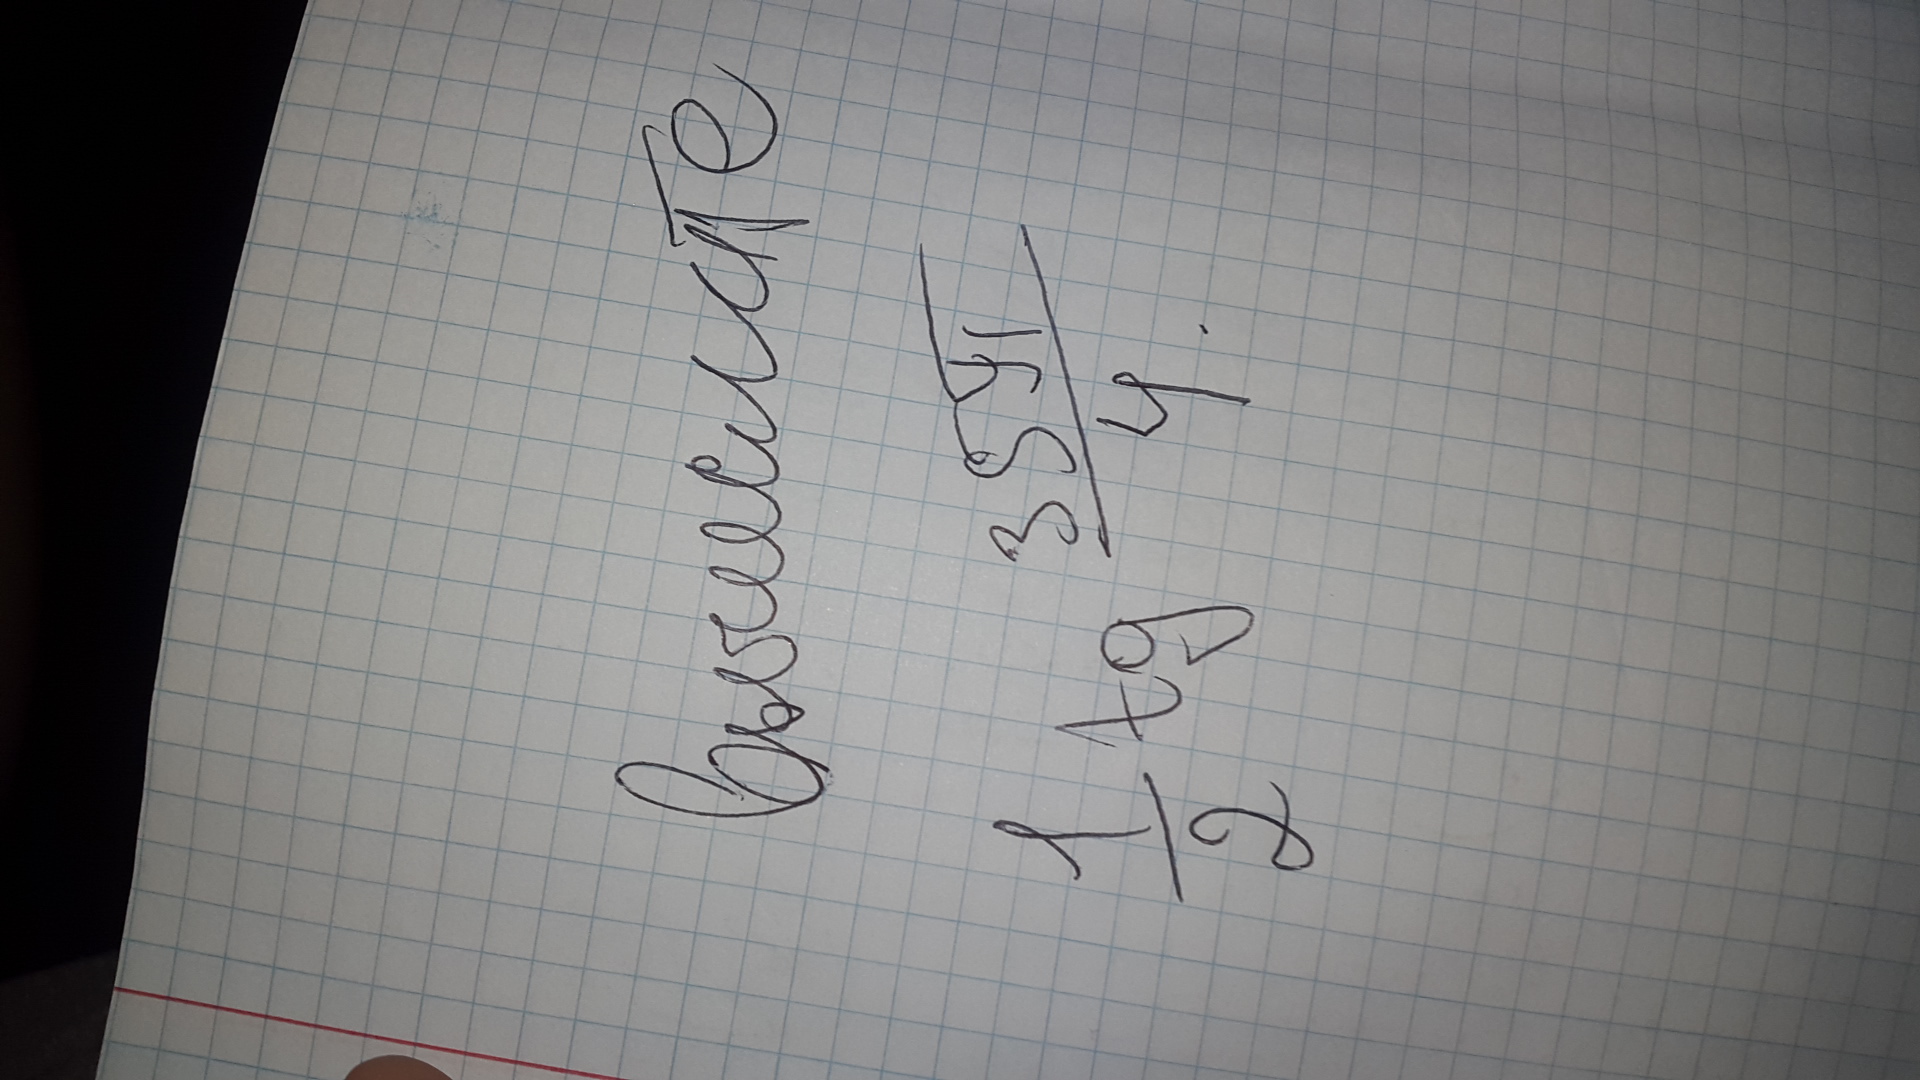 Вычислите
1/2 tg 35π/4.